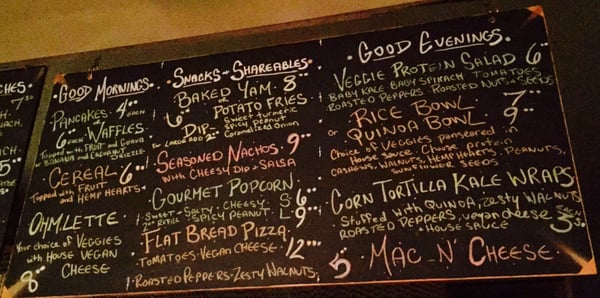 GOOD MORNINGS
PANCAKES 4 EACH
6 EACH WAFFLES
Topped with FRUIT and GUAVA
CEREAL 6
Topped with FRUIT
and HEMP HEARTS
OHMLETTE
Your choice of VEGGIES
with HOUSE VEGAN
CHEESE
8
SNACKS + SHAREABLES
BAKED YAM 8
or
POTATO FRIES
6
DIP
SWEET TURMERIC
SPICY PEANUT
CARAMELIZED ONION
SEASONED NACHOS 9
WITH CHEESY DIP + SALSA
GOURMET POPCORN
SWEET · SALTY · CHEESY S 6
SPICY PEANUT L 9
FLAT BREAD PIZZA
TOMATOES · VEGAN CHEESE 12
ROASTED PEPPERS · ZESTY WALNUTS
GOOD EVENINGS
VEGGIE PROTEIN SALAD 6
BABY KALE BABY SPINACH TOMATOES
ROASTED PEPPERS ROASTED NUTS + SEEDS
RICE BOWL 7
or QUINOA BOWL 9
Choice of VEGGIES panseared in
House sauce Choose protein
CASHEWS, WALNUTS, HEMP HEARTS, PEANUTS,
SUNFLOWER SEEDS
CORN TORTILLA KALE WRAPS
Stuffed with QUINOA, Zesty WALNUTS
ROASTED PEPPERS, vegan cheese
+ HOUSE SAUCE
5 MAC N' CHEESE